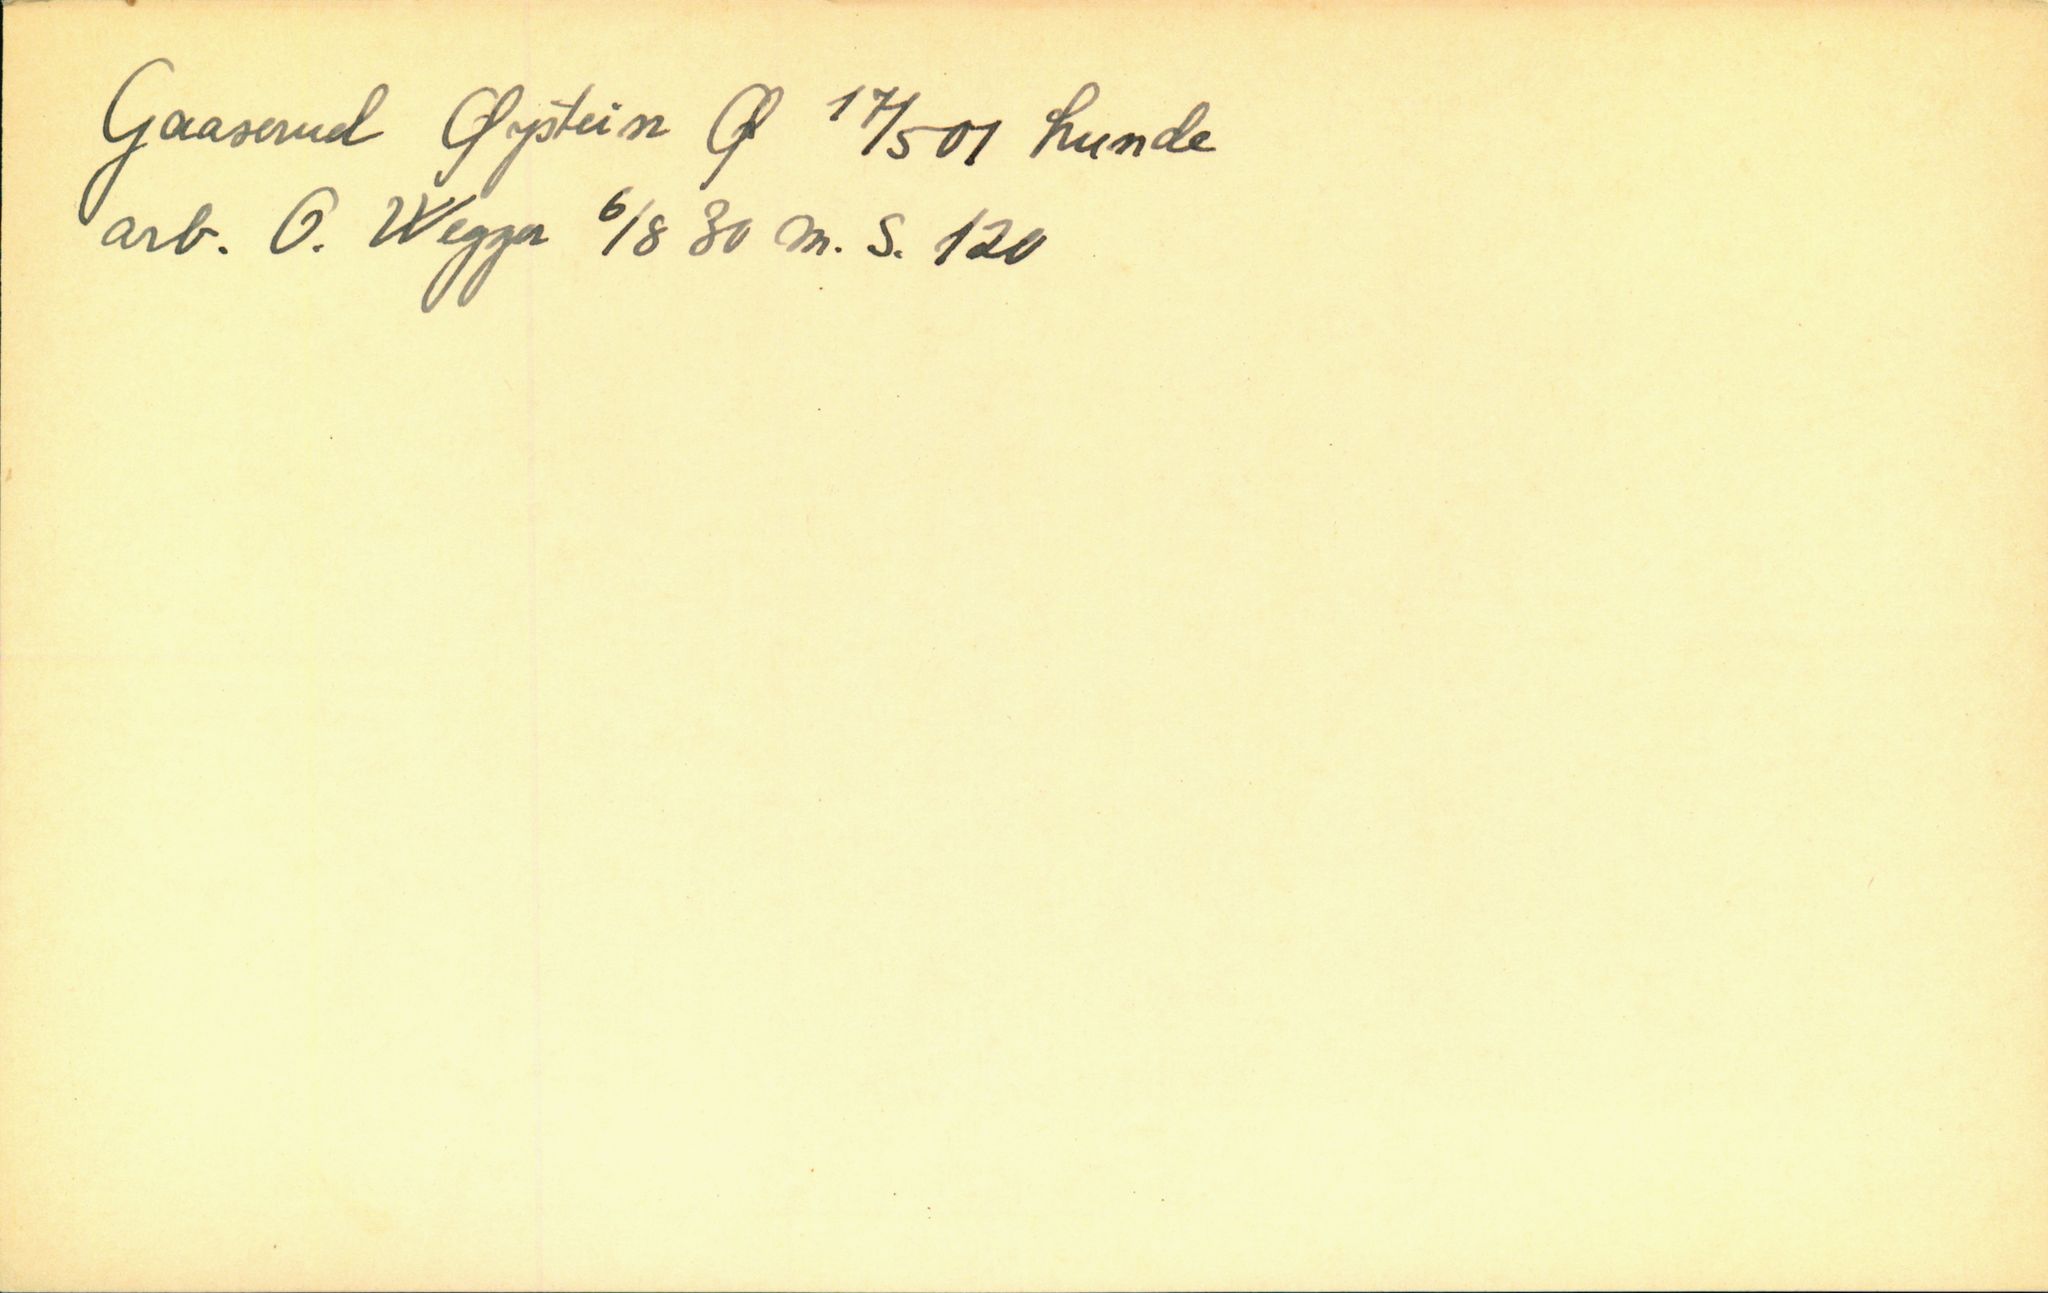 Gaaserud Øystein Ø 17/5 01 Lunde
arb. O. Wegger 6/8 30 M. S. 120